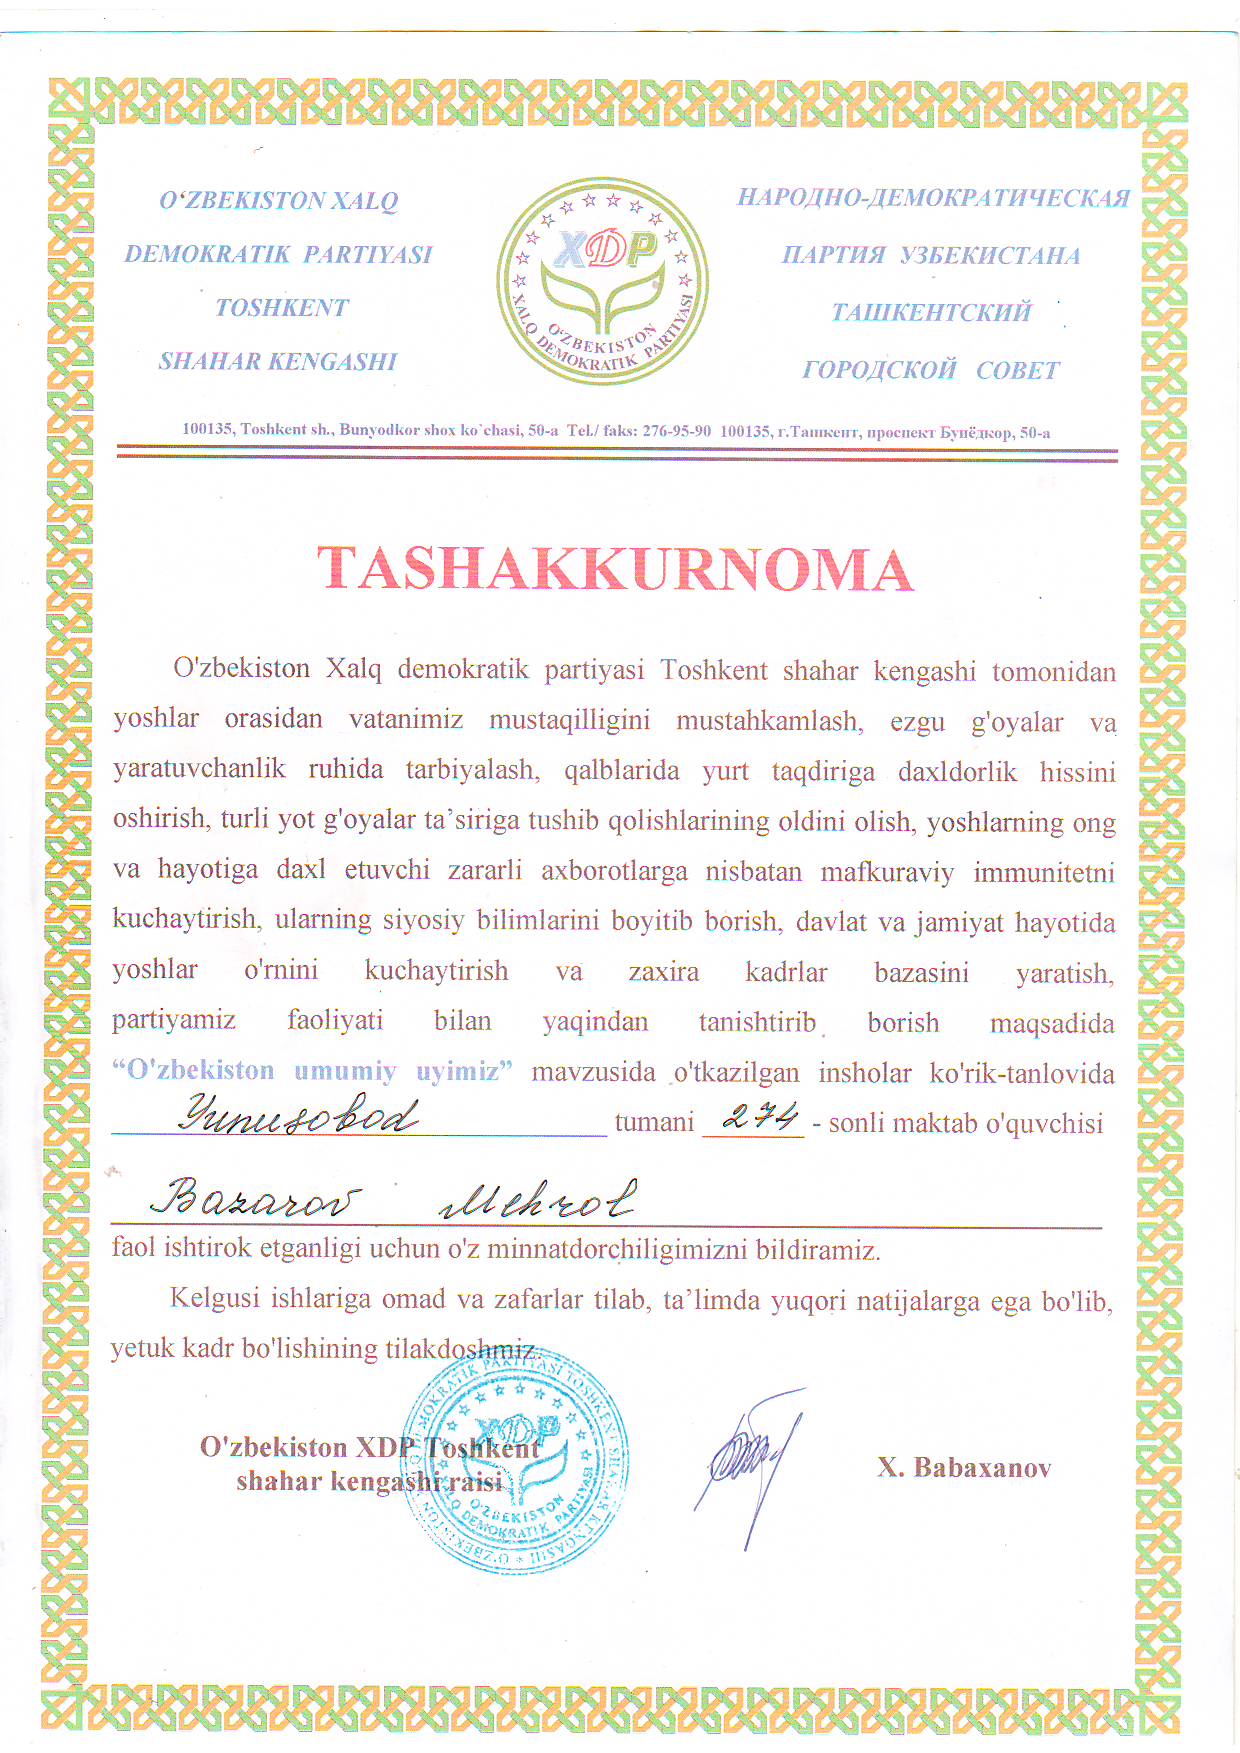 O‘ZBEKISTON XALQ
DEMOKRATIK PARTIYASI
TOSHKENT
SHAHAR KENGASHI
XDP
O‘ZBEKISTON
XALQ DEMOKRATIK PARTIYASI
НАРОДНО-ДЕМОКРАТИЧЕСКАЯ
ПАРТИЯ УЗБЕКИСТАНА
ТАШКЕНТСКИЙ
ГОРОДСКОЙ СОВЕТ
100135, Toshkent sh., Bunyodkor shox ko`chasi, 50-a Tel./ faks: 276-95-90 100135, г.Ташкент, проспект Бунёдкор, 50-а
TASHAKKURNOMA
O'zbekiston Xalq demokratik partiyasi Toshkent shahar kengashi tomonidan
yoshlar orasidan vatanimiz mustaqilligini mustahkamlash, ezgu g'oyalar va
yaratuvchanlik ruhida tarbiyalash, qalblarida yurt taqdiriga daxldorlik hissini
oshirish, turli yot g'oyalar ta’siriga tushib qolishlarining oldini olish, yoshlarning ong
va hayotiga daxl etuvchi zararli axborotlarga nisbatan mafkuraviy immunitetni
kuchaytirish, ularning siyosiy bilimlarini boyitib borish, davlat va jamiyat hayotida
yoshlar o'rnini kuchaytirish va zaxira kadrlar bazasini yaratish,
partiyamiz faoliyati bilan yaqindan tanishtirib borish maqsadida
“O'zbekiston umumiy uyimiz” mavzusida o'tkazilgan insholar ko'rik-tanlovida
Yunusobod tumani 274 - sonli maktab o'quvchisi
Bazarov Mehrob
faol ishtirok etganligi uchun o'z minnatdorchiligimizni bildiramiz.
Kelgusi ishlariga omad va zafarlar tilab, ta’limda yuqori natijalarga ega bo'lib,
yetuk kadr bo'lishining tilakdoshmiz.
O'zbekiston XDP Toshkent
shahar kengashi raisi
X. Babaxanov
XDP
O‘ZBEKISTON
XALQ DEMOKRATIK PARTIYASI